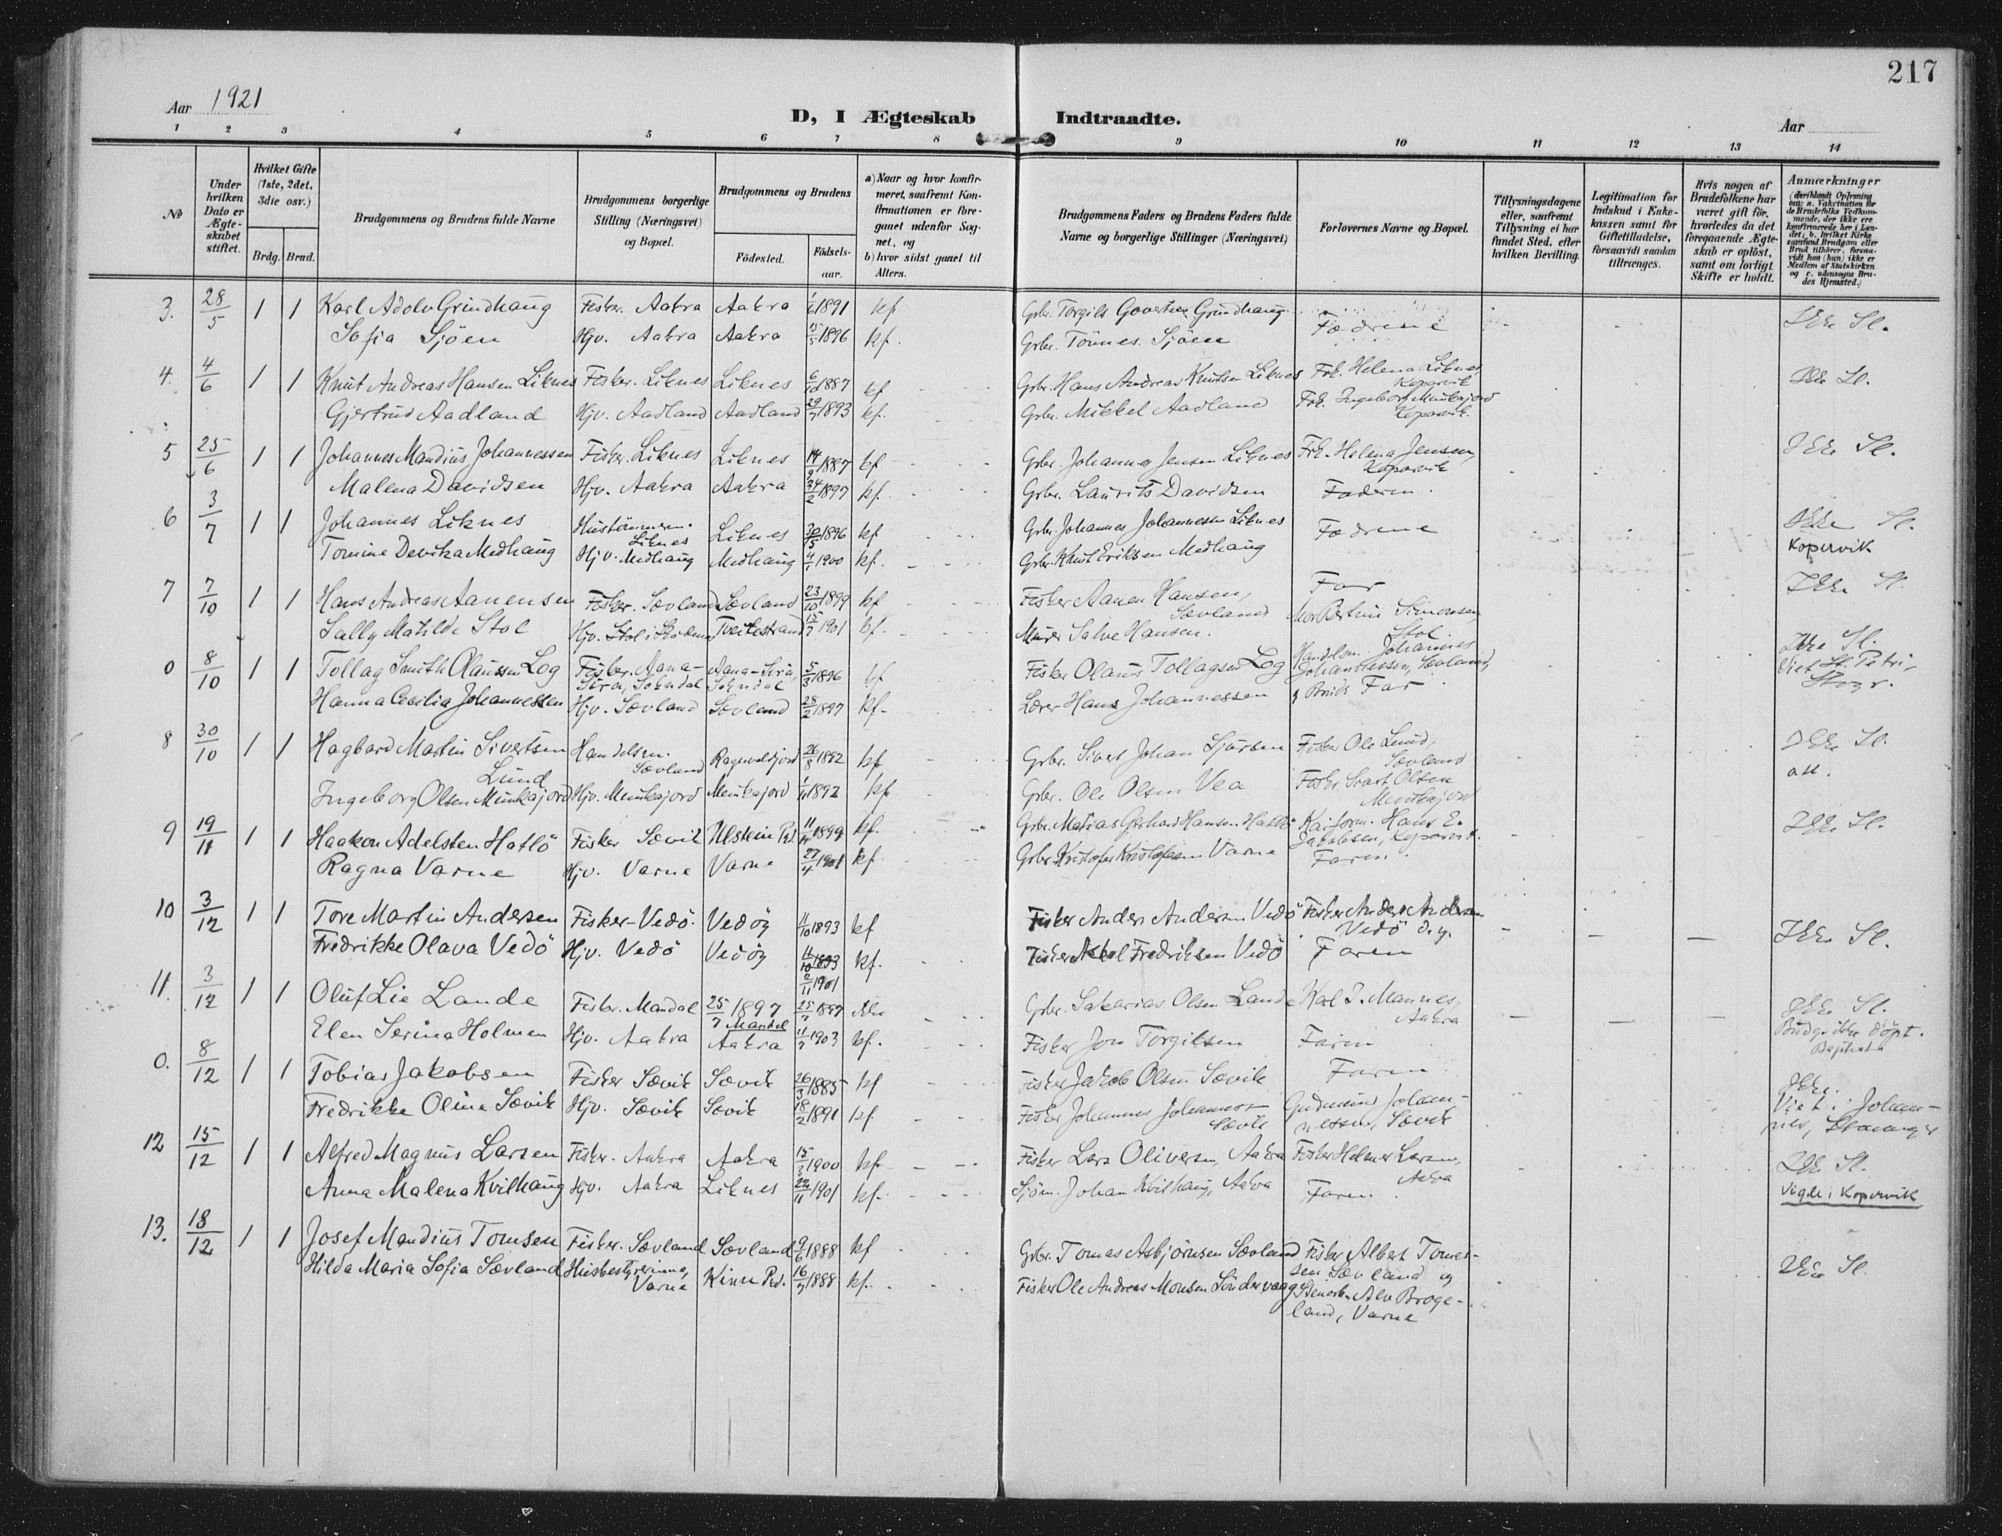 217
Aar 1921
D, I Ægteskab Indtraadte.
Aar
1 2 3 4 5 6 7 8 9 10 11 12 13 14
No
Under hvilken Dato er Ægteskabet stiftet.
Hvilket Gifte (1ste, 2det, 3die osv.)
Brdg. Brud.
Brudgommens og Brudens fulde Navne
Brudgommens borgerlige Stilling (Næringsvei) og Bopæl.
Brudgommens og Brudens
Fødested.
Fødselsaar.
a) Naar og hvor konfirmeret, saafremt Konfirmationen er foregaaet udenfor Sognet, og
b) hvor sidst gaaet til Alters.
Brudgommens Faders og Brudens Faders fulde Navne og borgerlige Stillinger (Næringsvei)
Forlovernes Navne og Bopæl.
Tillysningsdagene eller, saafremt Tillysning ei har fundet Sted, efter hvilken Bevilling.
Legitimation for Indskud i Enkekassen samt for Giftetilladelse, forsaavidt saadan tiltrænges.
Hvis nogen af Brudefolkene har været gift før, hvorledes da det foregaaende Ægteskab er opløst, samt om lovligt Skifte er holdt.
Anmærkninger
3. 28/5 1 1 Karl Adolv Grindhaug Fisker. Aakra Aakra 1891 kf Grbr. Torgils Govertsen Grindhaug Fædrene Ikke Sl.
Sofia Sjöen Hjv. Aakra Aakra 1896 kf. Grbr. Tönnes Sjöen
4. 4/6 1 1 Knut Andreas Hansen Liknes Fisker. Liknes Liknes 6/10 1887 kf Grbr. Hans Andreas Knutsen Liknes Frk. Helena Liknes, Kopervik Ikke Sl.
Gjertrud Aadland Hjv. Aadland Aadland 1893 kf. Grbr. Mikkel Aadland Frk. Ingeborg Munkajord Kopervik.
5 25/6 1 1 Johannes Mandius Johannessen Fisker. Liknes Liknes 14/9 1887 kf Grbr. Johannes Jensen Liknes Frk. Helena Jensen, Kopervik Ikke Sl.
Malena Davidsen Hjv. Aakra Aakra 24/2 1897 kf. Grbr. Laurits Davidsen Faderen.
6 3/7 1 1 Johannes Liknes Hustömmerm. Liknes Liknes 1896 kf Grbr. Johannes Johannessen Liknes Fædrene Ikke Sl. Kopervik
Tomine Devika Medhaug Hjv. Medhaug Medhaug 1900 kf. Grbr. Knut Eriksen Medhaug
7 7/10 1 1 Hans Andreas Aanensen Fisker. Sævland Sævland 23/10 1899 kf Fisker Aanen Hansen, Sævland Far Ikke Sl.
Sally Matilde Stol Hjv. Stol i Tveitestrand 15/7 1901 kf. Murer Salve Hansen. Mor Bertine Simonsen, Stol.
0 8/10 1 1 Tollag Smith Olaussen Log Fisker. Aana-Sira, Sokndal Aana-Sira, Sokndal 5/3 1896 kf Fisker Olaus Tollagsen Log Handelsm. Johannes Johannessen, Sævland, Ikke Sl. Viet St. Petri, Stvgr.
Hanna Cecilia Johannessen Hjv. Sævland Sævland 28/2 1897 kf. Lærer Hans Johannessen & Bruds Far.
8 30/10 1 1 Hagbard Martin Sivertsen Lund Handelsm. Sævland Ragnvaldjord 26/8 1892 kf Grbr. Sivert Johan Sjursen Fisker Ole Lund, Sævland Ikke Sl.
Ingeborg Olsen Munkajord Hjv. Munkajord Munkajord 1892 kf. Grbr. Ole Olsen Vea Fisker Olsen Munkajord
9 19/11 1 1 Haakon Adelsten Hatlö Fisker Sævik Ulstein Pd. 1899 kf. Grbr. Matias Gerhard Hansen Hatlö Hans E. Jakobsen, Kopervik. Ikke Sl.
Ragna Varne Hjv. Varne Varne 27/4 1901 kf. Grbr. Kristofer Kristofersen Varne Faren.
10 3/12 1 1 Tore Martin Andersen Fisker-Vedö. Vedöy 11/10 1893 kf Fisker Anders Andersen Vedö Fisker Anders Andersen Vedö d.y. Ikke Sl.
Fredrikke Olava Vedö Hjv. Vedö Vedöy 11/10 1893 2/11 1901 kf. Fisker Aksel Fredriksen Vedö Faren
11. 3/12 1 1 Oluf Lie Lande Fisker. Mandal 25/7 1897 Mandal 25/7 1897 Ikke Grbr. Sakarias Olsen Lande Karl J. Mannes, Aakra Ikke Sl. Budg. ikke döpt. Baptist
Elen Serina Holmen Hjv. Aakra Aakra 11/7 1903 kf. Fisker Jon Torgilsen Faren
0. 8/12 1 1 Tobias Jakobsen Fisker Sævik Sævik 26/3 1885 kf Fisker Jakob Olsen Sævik Faren Ikke. Viet i Johannes, Stavanger
Fredrikke Oline Sævik Hjv. Sævik Sævik 18/2 1891 kf. Fisker Johannes Johannes. Sævik Gudmund Johannessen, Sævik
12 15/12 1 1 Alfred Magnus Larsen Fisker. Aakra Aakra 1900 kf. Fisker Lars Oliversen, Aakra Fisker Helmer Larsen, Aakra Ikke Sl. Vigde i Kopervik
Anna Malena Kvilhaug Hjv. Aakra Liknes 22/11 1901 kf. Sjöm. Johan Kvilhaug, Aakra Faren.
13. 18/12 1 1 Josef Mandius Tomsen Fisker. Sævland Sævland 9/6 1888 kf Grbr. Tomas Asbjörnsen Sævland Fisker Albert Tomessen Sævland og Ikke Sl.
Hilda Maria Sofia Sævland Husbestyrerinne, Varne Kinn Pd. 16/7 1888 kf. Fisker Ole Andreas Monsen Söndervaag Alv Brogeland, Varne